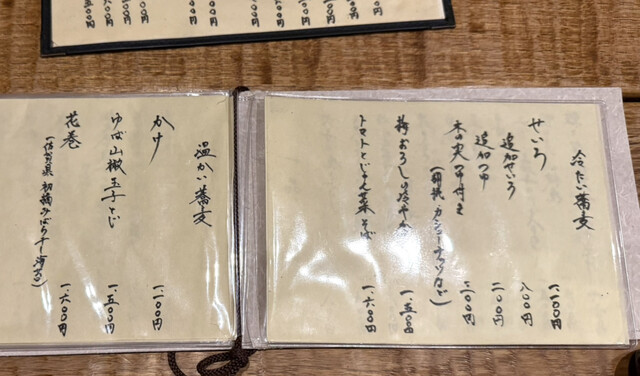 冷たい蕎麦
せいろ 一.一〇〇円
追加せいろ 八〇〇円
追加つゆ 二〇〇円
木の実つゆ付き
(胡桃・カシューナッツなど)
梅おろしの冷や 一.五〇〇円
トマトとじゅん菜そば 一.六〇〇円
温かい蕎麦
かけ 一.一〇〇円
ゆば山椒玉子とじ 一.五〇〇円
花巻 一.六〇〇円
(佐賀県 初摘みばら干海苔)